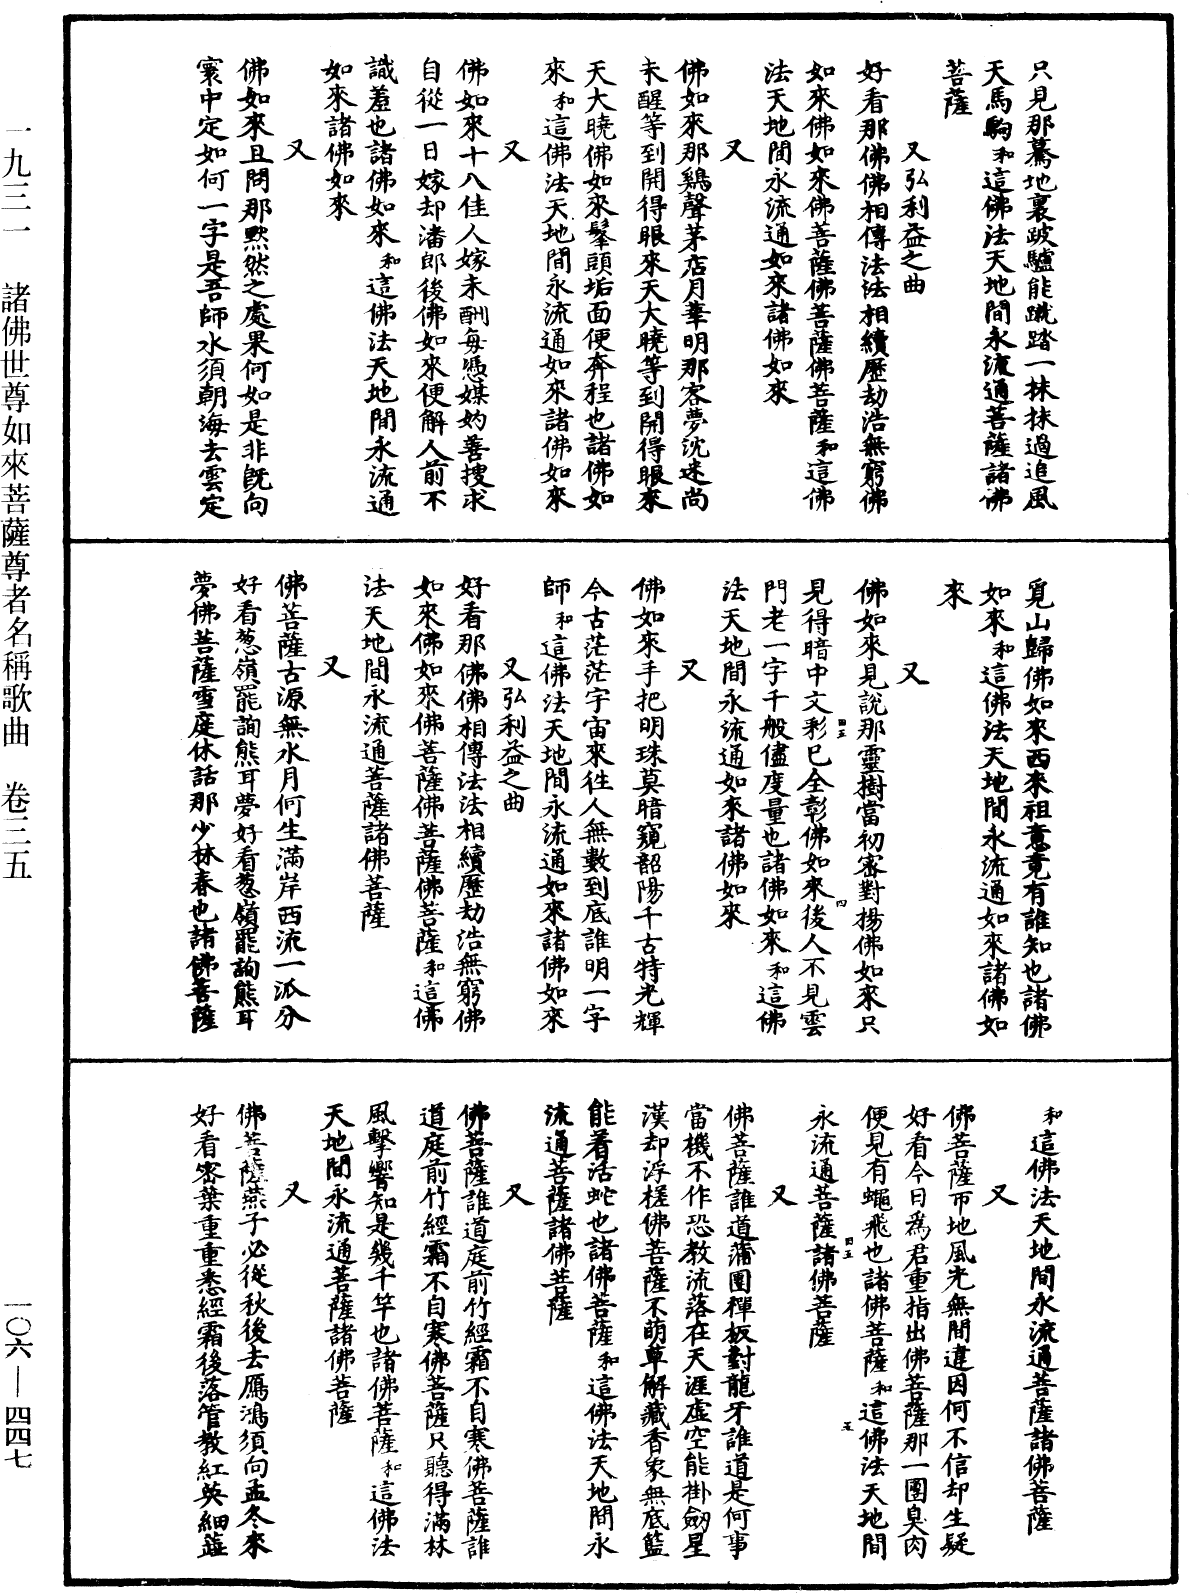 只見那驀地裏跛驢能跳踏一抹抹過追風
天馬駒和這佛法天地間永流通菩薩諸佛
菩薩
又弘利益之曲
好看那佛佛相傳法法相續歷劫浩無窮佛
如來佛如來佛菩薩佛菩薩佛菩薩和這佛
法天地間永流通如來諸佛如來
又
佛如來那鷄聲茅店月華明那客夢沈迷尚
未醒等到開得眼來天大曉等到開得眼來
天大曉佛如來髼頭垢面便奔程也諸佛如
來和這佛法天地間永流通如來諸佛如來
又
佛如來十八佳人嫁未酬每憑媒妁善搜求
自從一日嫁却潘郎後佛如來便解人前不
識羞也諸佛如來和這佛法天地間永流通
如來諸佛如來
又
佛如來且問那默然之處果何如是非既向
寰中定如何一字是吾師水須朝海去雲定
覓山歸佛如來西來祖意竟有誰知也諸佛
如來和這佛法天地間永流通如來諸佛如
來
又
佛如來見說那靈樹當初密對揚佛如來只
見得暗中文彩已全彰佛如來後人不見雲
門老一字千般儘度量也諸佛如來和這佛
法天地間永流通如來諸佛如來
又
佛如來手把明珠莫暗窺韶陽千古特光輝
今古茫茫宇宙來往人無數到底誰明一字
師和這佛法天地間永流通如來諸佛如來
又弘利益之曲
好看那佛佛相傳法法相續歷劫浩無窮佛
如來佛如來佛菩薩佛菩薩佛菩薩和這佛
法天地間永流通菩薩諸佛菩薩
又
佛菩薩古源無水月何生滿岸西流一派分
好看葱嶺罷詢熊耳夢好看葱嶺罷詢熊耳
夢佛菩薩雪庭休話那少林春也諸佛菩薩
和這佛法天地間永流通菩薩諸佛菩薩
又
佛菩薩帀地風光無間違因何不信却生疑
好看今日為君重指出佛菩薩那一團臭肉
便見有蠅飛也諸佛菩薩和這佛法天地間
永流通菩薩諸佛菩薩
又
佛菩薩誰道蒲團禪板對龍牙誰道是何事
當機不作恐教流落在天涯虛空能掛劒星
漢却浮槎佛菩薩不萌草解藏香象無底籃
能着活蛇也諸佛菩薩和這佛法天地間永
流通菩薩諸佛菩薩
又
佛菩薩誰道庭前竹經霜不自寒佛菩薩誰
道庭前竹經霜不自寒佛菩薩只聽得滿林
風擊響知是幾千竿也諸佛菩薩和這佛法
天地間永流通菩薩諸佛菩薩
又
佛菩薩燕子必從秋後去鴈鴻須向孟冬來
好看密葉重重悉經霜後落管教紅英細蘂
一九三一 諸佛世尊如來菩薩尊者名稱歌曲 卷三五
一〇六—四四七